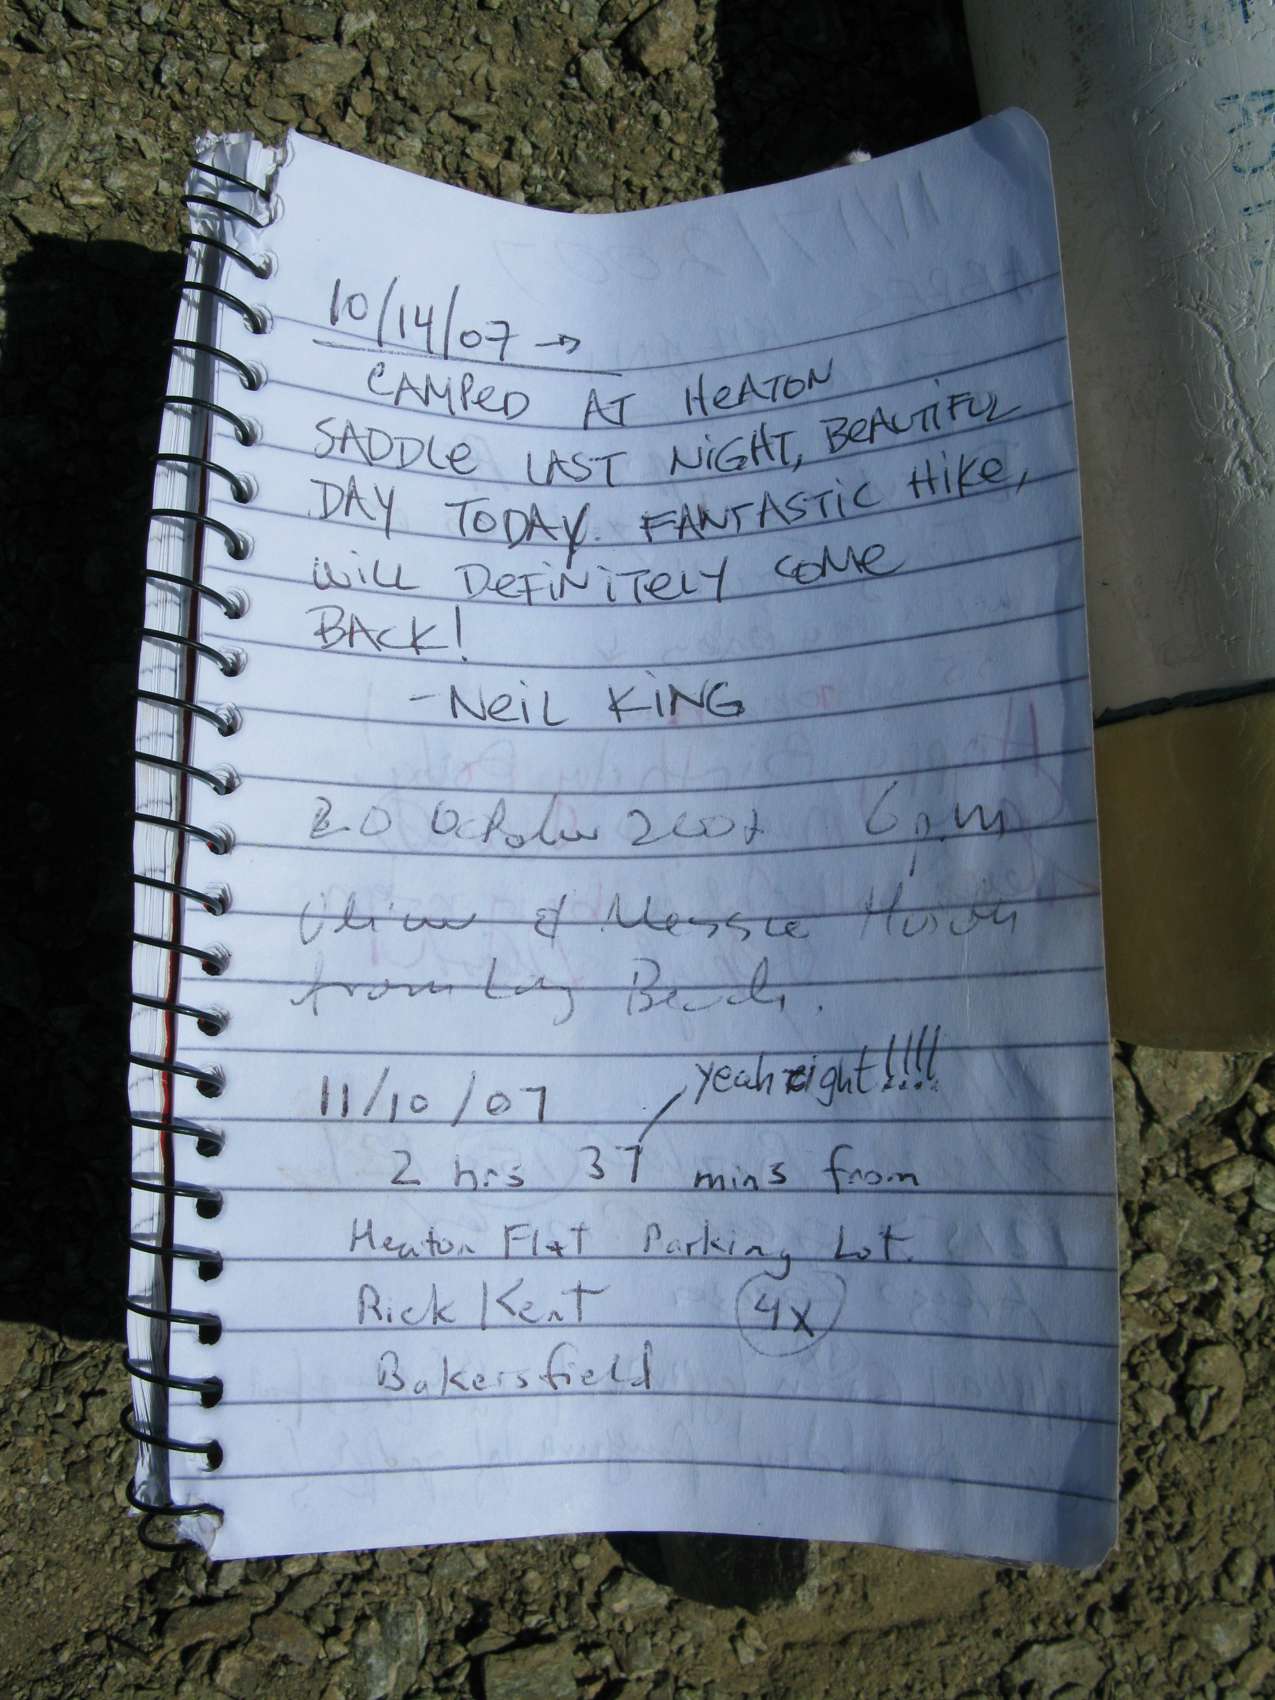 10/14/07 →
CAMPED AT HEATON
SADDLE LAST NIGHT, BEAUTIFUL
DAY TODAY. FANTASTIC HIKE,
WILL DEFINITELY COME
BACK!
-NEIL KING
20 October 2007 6 p.m
& Messie
from Long Beach.
11/10/07 yeah right!!!!
2 hrs 37 mins from
Heaton Flat Parking Lot.
Rick Kent 4x
Bakersfield